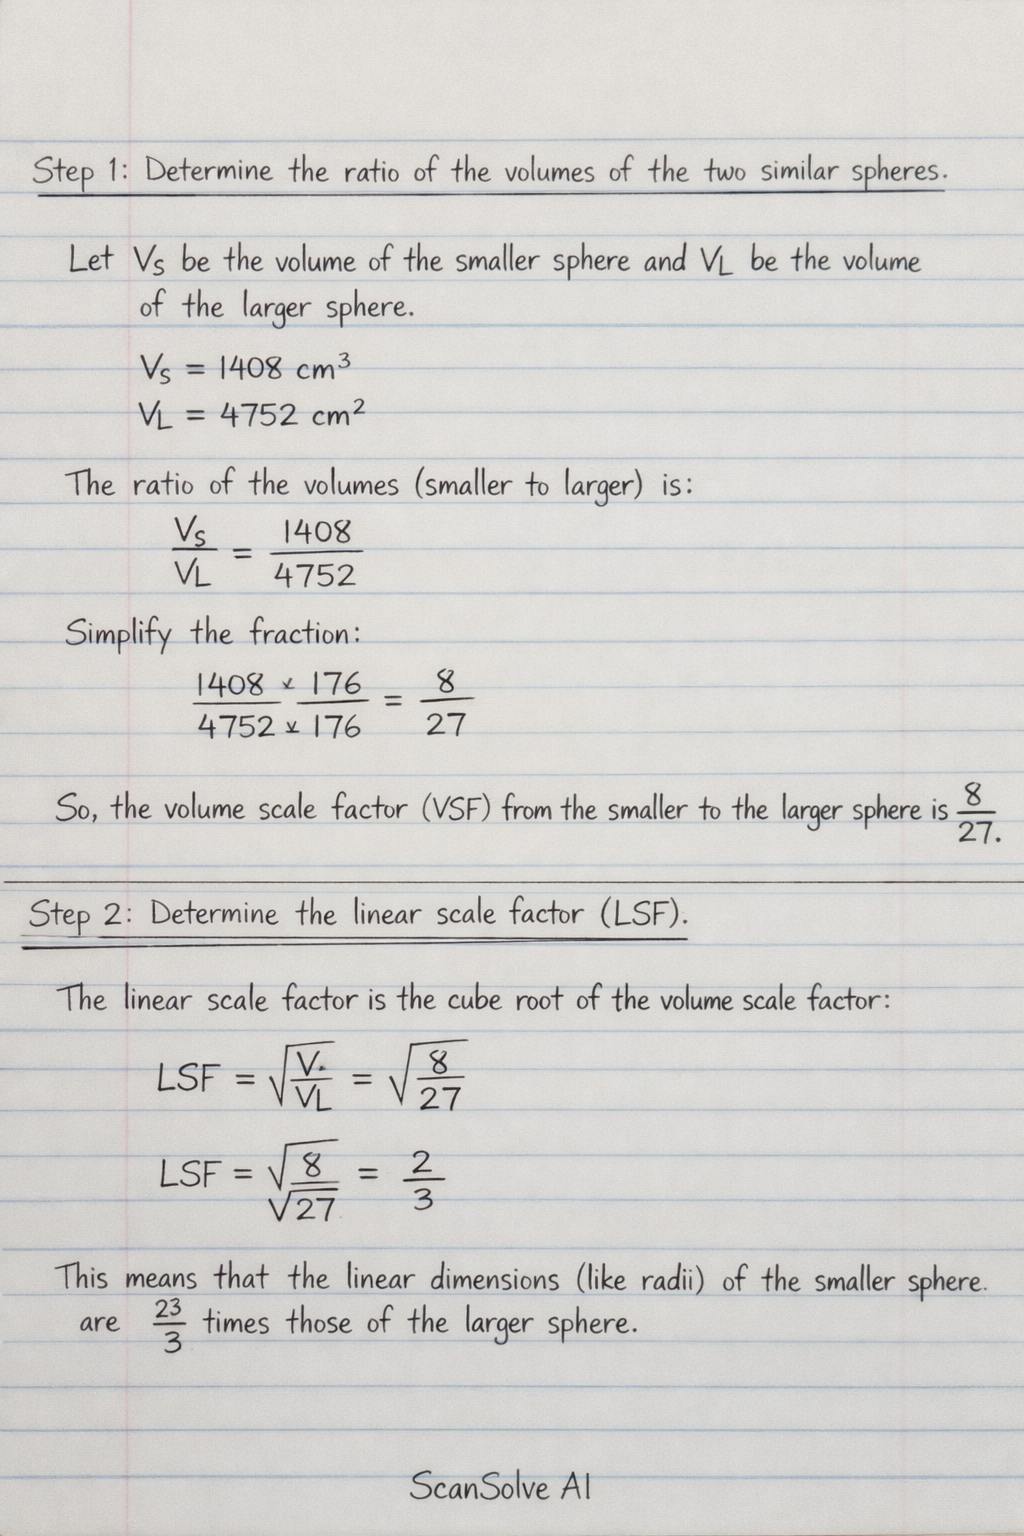 Step 1: Determine the ratio of the volumes of the two similar spheres.
Let Vs be the volume of the smaller sphere and VL be the volume
of the larger sphere.
Vs = 1408 cm³
VL = 4752 cm²
The ratio of the volumes (smaller to larger) is:
Vs/VL = 1408/4752
Simplify the fraction:
1408 × 176 / 4752 × 176 = 8/27
So, the volume scale factor (VSF) from the smaller to the larger sphere is 8/27.
Step 2: Determine the linear scale factor (LSF).
The linear scale factor is the cube root of the volume scale factor:
LSF = √(V./VL) = √(8/27)
LSF = √8/√27 = 2/3
This means that the linear dimensions (like radii) of the smaller sphere.
are 23/3 times those of the larger sphere.
ScanSolve AI